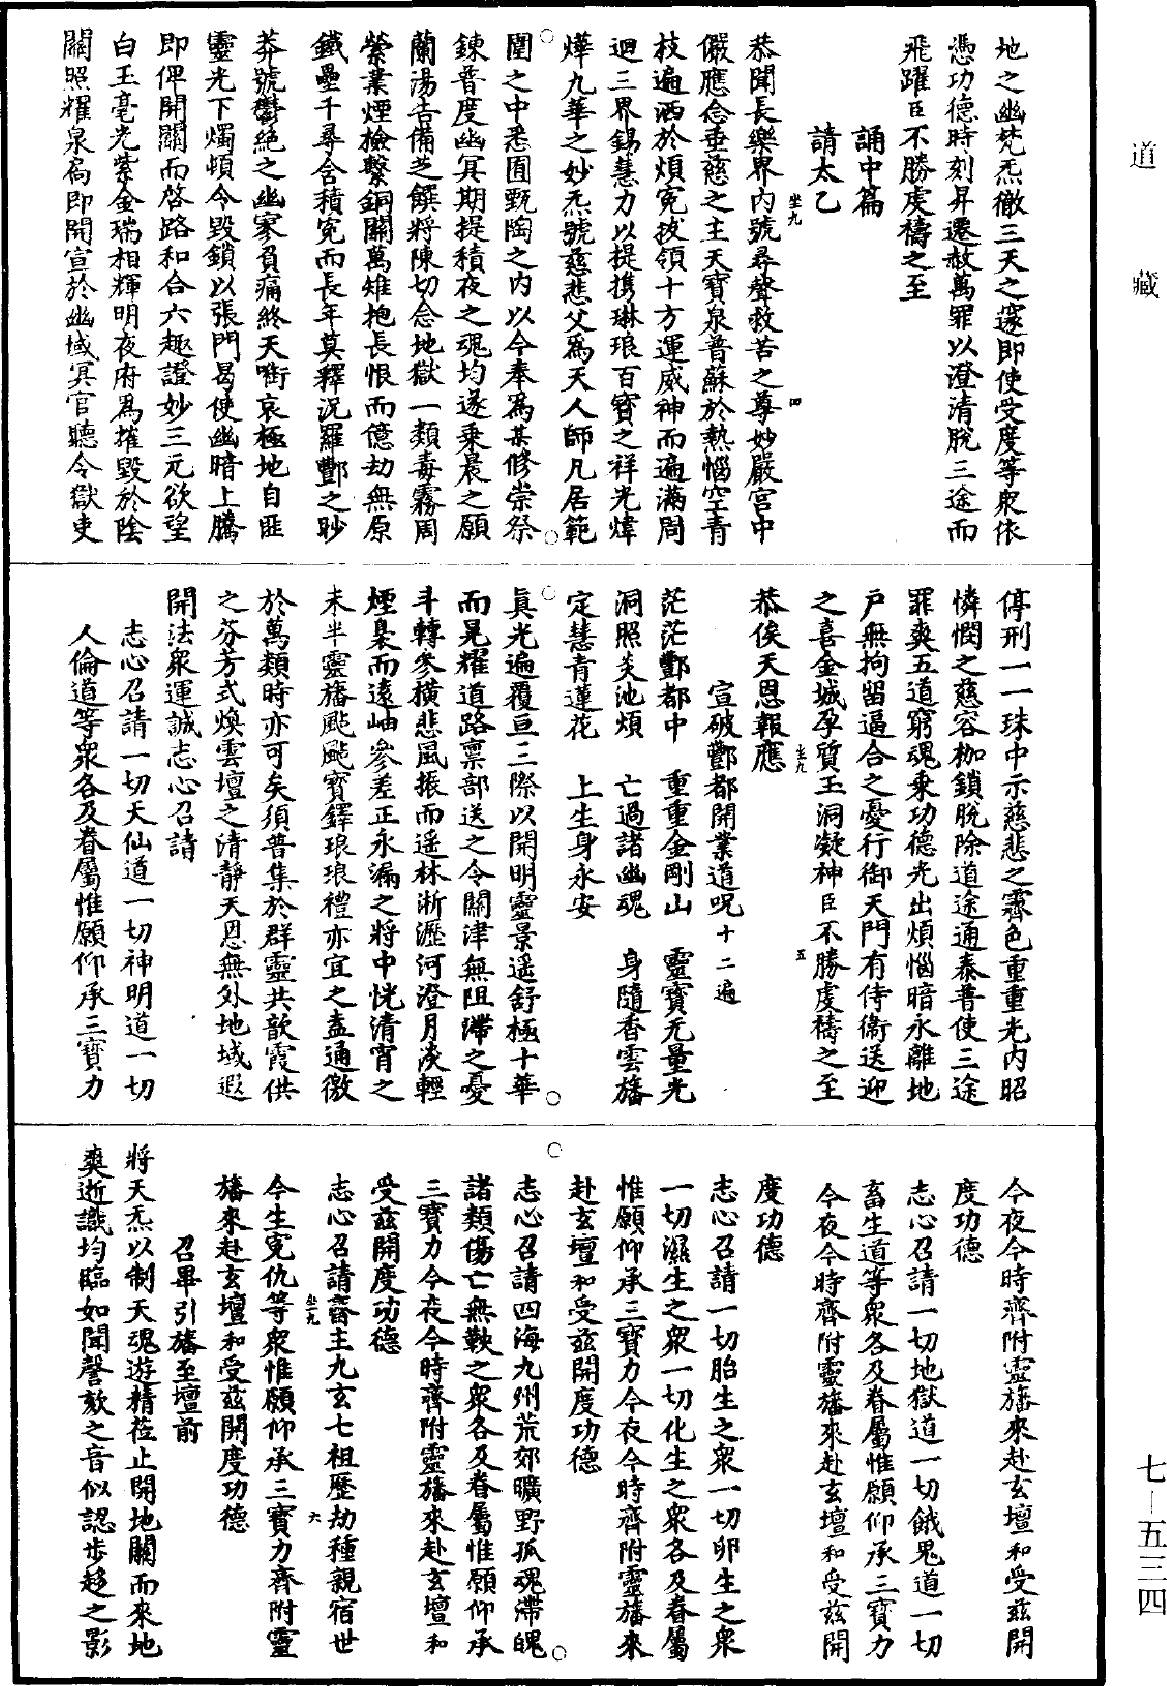 道藏
地之幽梵炁徹三天之邃即使受度等衆依
憑功德時刻昇遷赦萬罪以澄清脫三途而
飛躍臣不勝虔禱之至
誦中篇
請太乙
恭聞長樂界内號尋聲救苦之尊妙嚴宮中
儼應念垂慈之主天寶泉普蘇於熱惱空青
枝遍洒於煩冤拔領十方運威神而遍滿周
迴三界錫慧力以提携琳琅百寶之祥光煒
燁九華之妙炁號慈悲父爲天人師凡居範
圍之中悉囿甄陶之内以今奉爲某修崇祭
鍊普度幽冥期提積夜之魂均遂乘晨之願
蘭湯告備芝饌將陳切念地獄一類毒霧周
縈業煙撿繫銅關萬雉抱長恨而億劫無原
鐵壘千尋含積冤而長年莫釋況羅酆之眇
莽號鬱絶之幽冢負痛終天啣哀極地自匪
靈光下燭頓令毀鎖以張門曷使幽暗上騰
即俾開關而啓路和合六趣證妙三元欲望
白玉毫光紫金瑞相輝明夜府爲摧毀於陰
關照耀泉扃即開宣於幽域冥官聽令獄吏
停刑一一珠中示慈悲之霽色重重光内昭
憐憫之慈容枷鎖脫除道途通泰普使三途
罪爽五道窮魂乘功德光出煩惱暗永離地
户無拘留逼合之憂行御天門有侍衛送迎
之喜金城孕質玉洞凝神臣不勝虔禱之至
恭俟天恩報應
宣破酆都開業道呪十二遍
茫茫酆都中 重重金剛山 靈寶无量光
洞照炎池煩 亡過諸幽魂 身隨香雲旛
定慧青蓮花 上生身永安
眞光遍覆亘三際以開明靈景遥舒極十華
而晃耀道路禀部送之令關津無阻滯之憂
斗轉參橫悲風振而遥林淅瀝河澄月淡輕
煙裊而遠岫參差正永漏之將中恍清宵之
未半靈旛颭颭寶鐸琅琅禮亦宜之盍通微
於萬類時亦可矣須普集於群靈共歆霞供
之芬芳式煥雲壇之清靜天恩無外地域遐
開法衆運誠志心召請
志心召請一切天仙道一切神明道一切
人倫道等衆各及眷屬惟願仰承三寶力
今夜今時齊附靈旛來赴玄壇和受兹開
度功德
志心召請一切地獄道一切餓鬼道一切
畜生道等衆各及眷屬惟願仰承三寶力
今夜今時齊附靈旛來赴玄壇和受兹開
度功德
志心召請一切胎生之衆一切卵生之衆
一切濕生之衆一切化生之衆各及眷屬
惟願仰承三寶力今夜今時齊附靈旛來
赴玄壇和受兹開度功德
志心召請四海九州荒郊曠野孤魂滯魄
諸類傷亡無鞅之衆各及眷屬惟願仰承
三寶力今夜今時齊附靈旛來赴玄壇和
受兹開度功德
志心召請齋主九玄七祖歷劫種親宿世
今生冤仇等衆惟願仰承三寶力齊附靈
旛來赴玄壇和受兹開度功德
召畢引旛至壇前
將天炁以制天魂遊精莅止開地關而來地
爽逝識均臨如聞謦欬之音似認步趍之影
七–五三四